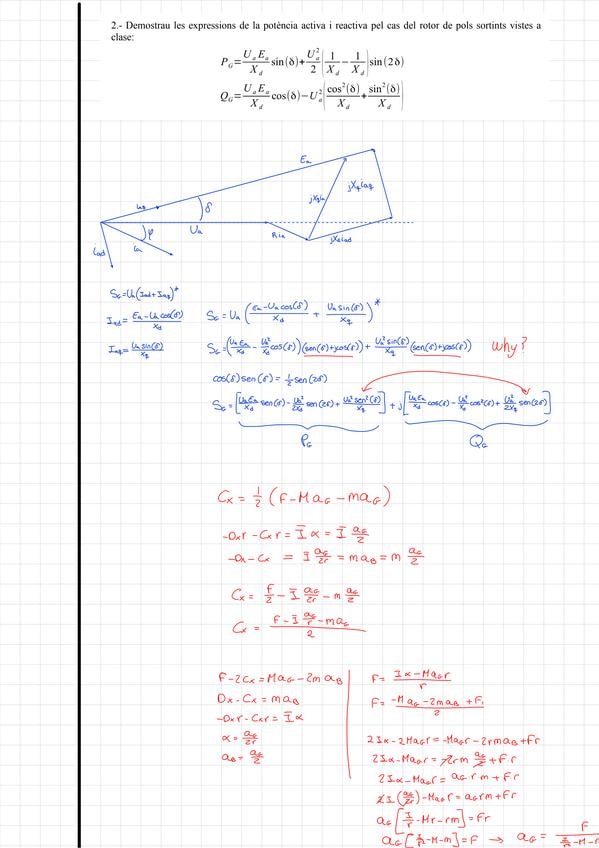 2.- Demostrau les expressions de la potència activa i reactiva pel cas del rotor de pols sortints vistes a
classe:
P_G = U_a E_a / X_d sin(δ) + U_a² / 2 (1 / X_d − 1 / X_d) sin(2δ)
Q_G = U_a E_a / X_d cos(δ) − U_a² (cos²(δ) / X_d + sin²(δ) / X_d)
E_a
jX_q i_aq
jX_q i_a
δ
U_a
R i_a
jX_d i_ad
φ
i_a
i_ad
S_G = U_a (I_ad + I_aq)*
I_ad = E_a − U_a cos(δ) / X_d
S_G = U_a (E_a − U_a cos(δ) / X_d + U_a sin(δ) / X_q)*
I_aq = U_a sin(δ) / X_q
S_G = (U_a E_a / X_d − U_a² / X_d cos(δ)) (sen(δ) + jcos(δ)) + U_a² sin(δ) / X_q (sen(δ) + jcos(δ))
why?
cos(δ) sen(δ) = 1/2 sen(2δ)
S_G = [U_a E_a / X_d sen(δ) − U_a² / 2X_d sen(2δ) + U_a² sen²(δ) / X_q] + j[U_a E_a / X_d cos(δ) − U_a² / X_d cos²(δ) + U_a² / 2X_q sen(2δ)]
P_G
Q_G
C_x = 1/2 (F − M a_G − m a_G)
−D_x r − C_x r = Ī α = Ī a_G / 2
−D_x − C_x = Ī a_G / 2r = m a_B = m a_G / 2
C_x = F / 2 − Ī a_G / 2r − m a_G / 2
C_x = F − Ī a_G / r − m a_G / 2
F − 2C_x = M a_G − 2m a_B
D_x − C_x = m a_B
−D_x r − C_x r = Ī α
α = a_G / 2r
a_B = a_G / 2
F = Iα − M a_G r / r
F = −M a_G − 2m a_B + F₁ / 2
2Iα − 2M a_G r = −M a_G r − 2r m a_B + Fr
2Iα − M a_G r = 2 r m a_G / 2 + F r
2Iα − M a_G r = a_G r m + Fr
2I (a_G / 2r) − M a_G r = a_G r m + Fr
a_G [I / r − Mr − rm] = Fr
a_G [I / r² − M − m] = F → a_G = F / I / r² − M − m